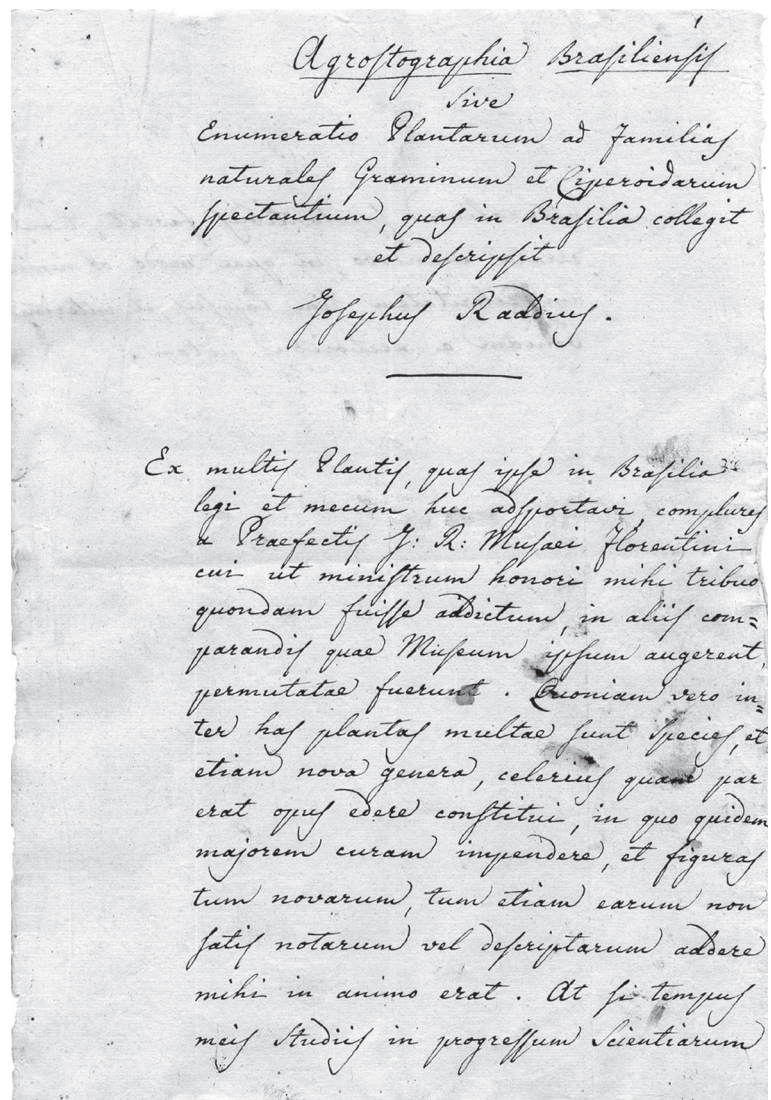 Agrostographia Brasiliensis
sive
Enumeratio Plantarum ad familias
naturales Graminum et Ciperoidarum
spectantium, quas in Brasilia collegit
et descripsit
Josephus Raddius.
Ex multis Plantis, quas ipse in Brasilia
legi et mecum huc adsportavi, complures
a Praefectis J: R: Musaei florentini
cui ut ministrum honori mihi tribuo
quondam fuisse addictum, in aliis com=
parandis quae Museum ipsum augerent,
permutatae fuerunt. Quoniam vero in=
ter has plantas multae sunt species, et
etiam nova genera, celerius quam par
erat opus edere constitui, in quo quidem
majorem curam impendere, et figuras
tum novarum, tum etiam earum non
satis notarum vel descriptarum addere
mihi in animo erat. At si tempus
meis studiis in progressum scientiarum